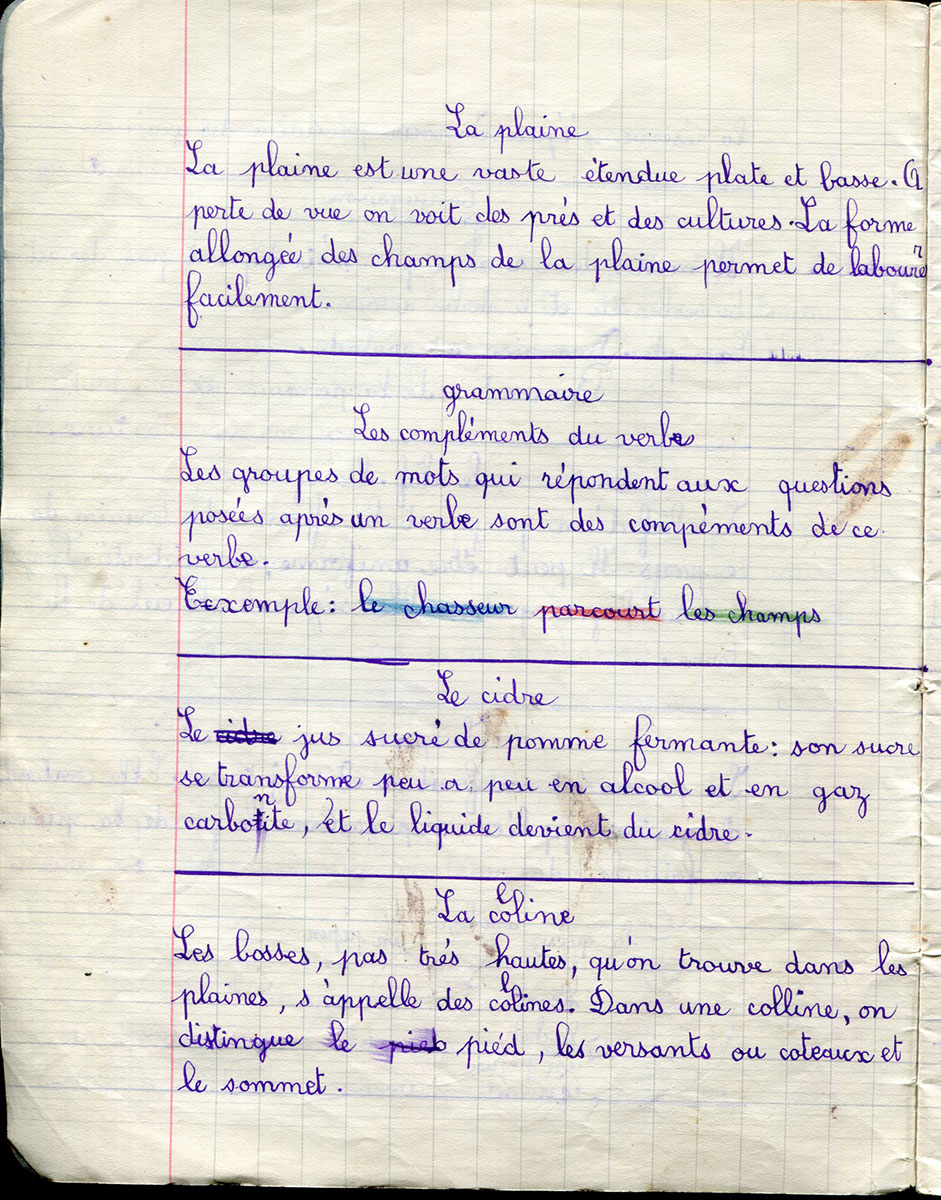 La plaine
La plaine est une vaste étendue plate et basse. A
perte de vue on voit des prés et des cultures. La forme
allongée des champs de la plaine permet de labourer
facilement.
grammaire
Les compléments du verbe
Les groupes de mots qui répondent aux questions
posées aprés un verbe sont des compéments de ce
verbe.
Eexemple: le chasseur parcourt les champs
Le cidre
Le cidre jus sucré de pomme fermante: son sucre
se transforme peu a peu en alcool et en gaz
carbonite, et le liquide devient du cidre.
La colline
Les bosses, pas trés hautes, qu'on trouve dans les
plaines, s'appelle des collines. Dans une colline, on
distingue le pieb piéd, les versants ou coteaux et
le sommet.